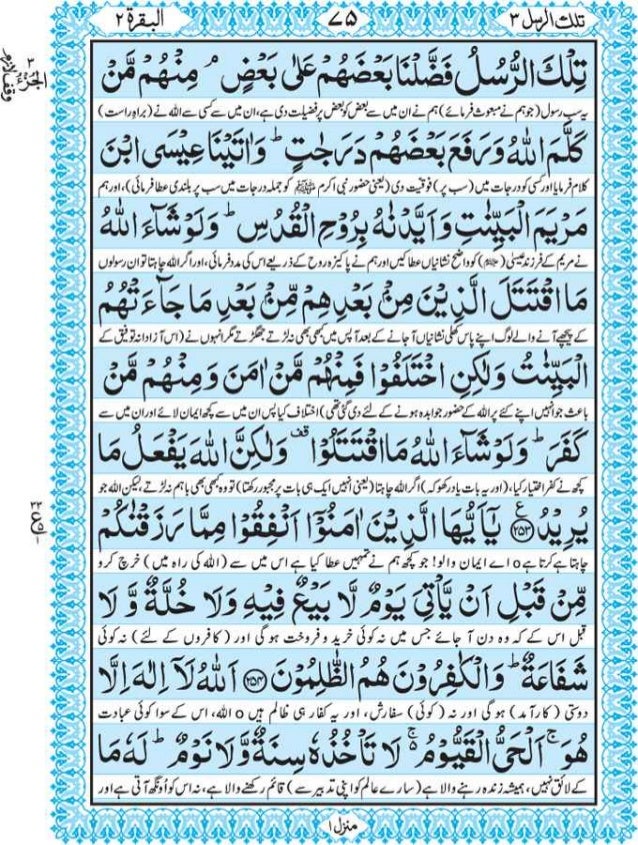 تلك الرسل ٣ ٧٥ البقرة ٢
تِلْكَ الرُّسُلُ فَضَّلْنَا بَعْضَهُمْ عَلٰی بَعْضٍ ۘ مِنْهُمْ مَّنْ
یہ سب رسول (جو ہم نے مبعوث فرمائے) ہم نے ان میں سے بعض کو بعض پر فضیلت دی ہے، ان میں سے کسی سے اللہ نے (براہِ راست)
كَلَّمَ اللّٰهُ وَرَفَعَ بَعْضَهُمْ دَرَجٰتٍ ؕ وَاٰتَيْنَا عِيْسَی ابْنَ
کلام فرمایا اور کسی کو درجات میں (سب پر) فوقیت دی (یعنی حضور نبی اکرم ﷺ کو جملہ درجات میں سب پر بلندی عطا فرمائی)، اور ہم
مَرْيَمَ الْبَيِّنٰتِ وَاَيَّدْنٰهُ بِرُوْحِ الْقُدُسِ ؕ وَلَوْ شَآءَ اللّٰهُ
نے مریم کے فرزند عیسیٰ کو واضح نشانیاں عطا کیں اور ہم نے پاکیزہ روح کے ذریعے اس کی مدد فرمائی، اور اگر اللہ چاہتا تو ان رسولوں
مَا اقْتَتَلَ الَّذِيْنَ مِنْۢ بَعْدِهِمْ مِّنْۢ بَعْدِ مَا جَآءَتْهُمُ
کے پیچھے آنے والے لوگ اپنے پاس کھلی نشانیاں آ جانے کے بعد آپس میں کبھی بھی نہ لڑتے جھگڑتے مگر انہوں نے (اس آزادانہ توفیق کے
الْبَيِّنٰتُ وَلٰكِنِ اخْتَلَفُوْا فَمِنْهُمْ مَّنْ اٰمَنَ وَمِنْهُمْ مَّنْ
باعث جو انہیں اپنے کئے پر اللہ کے حضور جوابدہ ہونے کے لئے دی گئی تھی) اختلاف کیا پس ان میں سے کچھ ایمان لائے اور ان میں سے
كَفَرَ ؕ وَلَوْ شَآءَ اللّٰهُ مَا اقْتَتَلُوْا ۟ وَلٰكِنَّ اللّٰهَ يَفْعَلُ مَا
کچھ نے کفر اختیار کیا، (اور یہ بات یاد رکھو کہ) اگر اللہ چاہتا (یعنی انہیں ایک ہی بات پر مجبور رکھتا) تو وہ کبھی بھی باہم نہ لڑتے، لیکن اللہ جو
يُرِيْدُ ﴿۲۵۳﴾ يٰۤاَيُّهَا الَّذِيْنَ اٰمَنُوْۤا اَنْفِقُوْا مِمَّا رَزَقْنٰكُمْ
چاہتا ہے کرتا ہے o اے ایمان والو! جو کچھ ہم نے تمہیں عطا کیا ہے اس میں سے (اللہ کی راہ میں) خرچ کرو
مِّنْ قَبْلِ اَنْ يَّاْتِیَ يَوْمٌ لَّا بَيْعٌ فِيْهِ وَلَا خُلَّةٌ وَّ لَا
قبل اس کے کہ وہ دن آ جائے جس میں نہ کوئی خرید و فروخت ہوگی اور (کافروں کے لئے) نہ کوئی
شَفَاعَةٌ ؕ وَالْكٰفِرُوْنَ هُمُ الظّٰلِمُوْنَ ﴿۲۵۴﴾ اَللّٰهُ لَاۤ اِلٰهَ اِلَّا
دوستی (کارآمد) ہوگی اور نہ (کوئی) سفارش، اور یہ کفار ہی ظالم ہیں o اللہ، اس کے سوا کوئی عبادت
هُوَ ۚ اَلْحَیُّ الْقَيُّوْمُ ۚ۬ لَا تَاْخُذُهٗ سِنَةٌ وَّلَا نَوْمٌ ؕ لَهٗ مَا
کے لائق نہیں، ہمیشہ زندہ رہنے والا ہے (سارے عالم کو اپنی تدبیر سے) قائم رکھنے والا ہے، نہ اس کو اُونگھ آتی ہے اور
منزل ۱